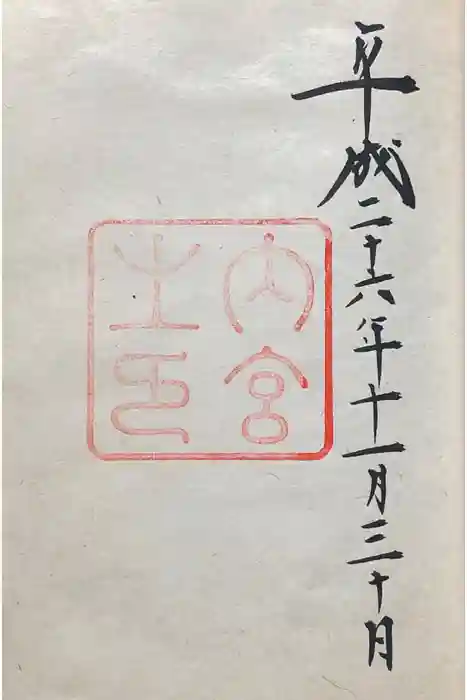 平成二十六年十一月三十日
内宮
之印